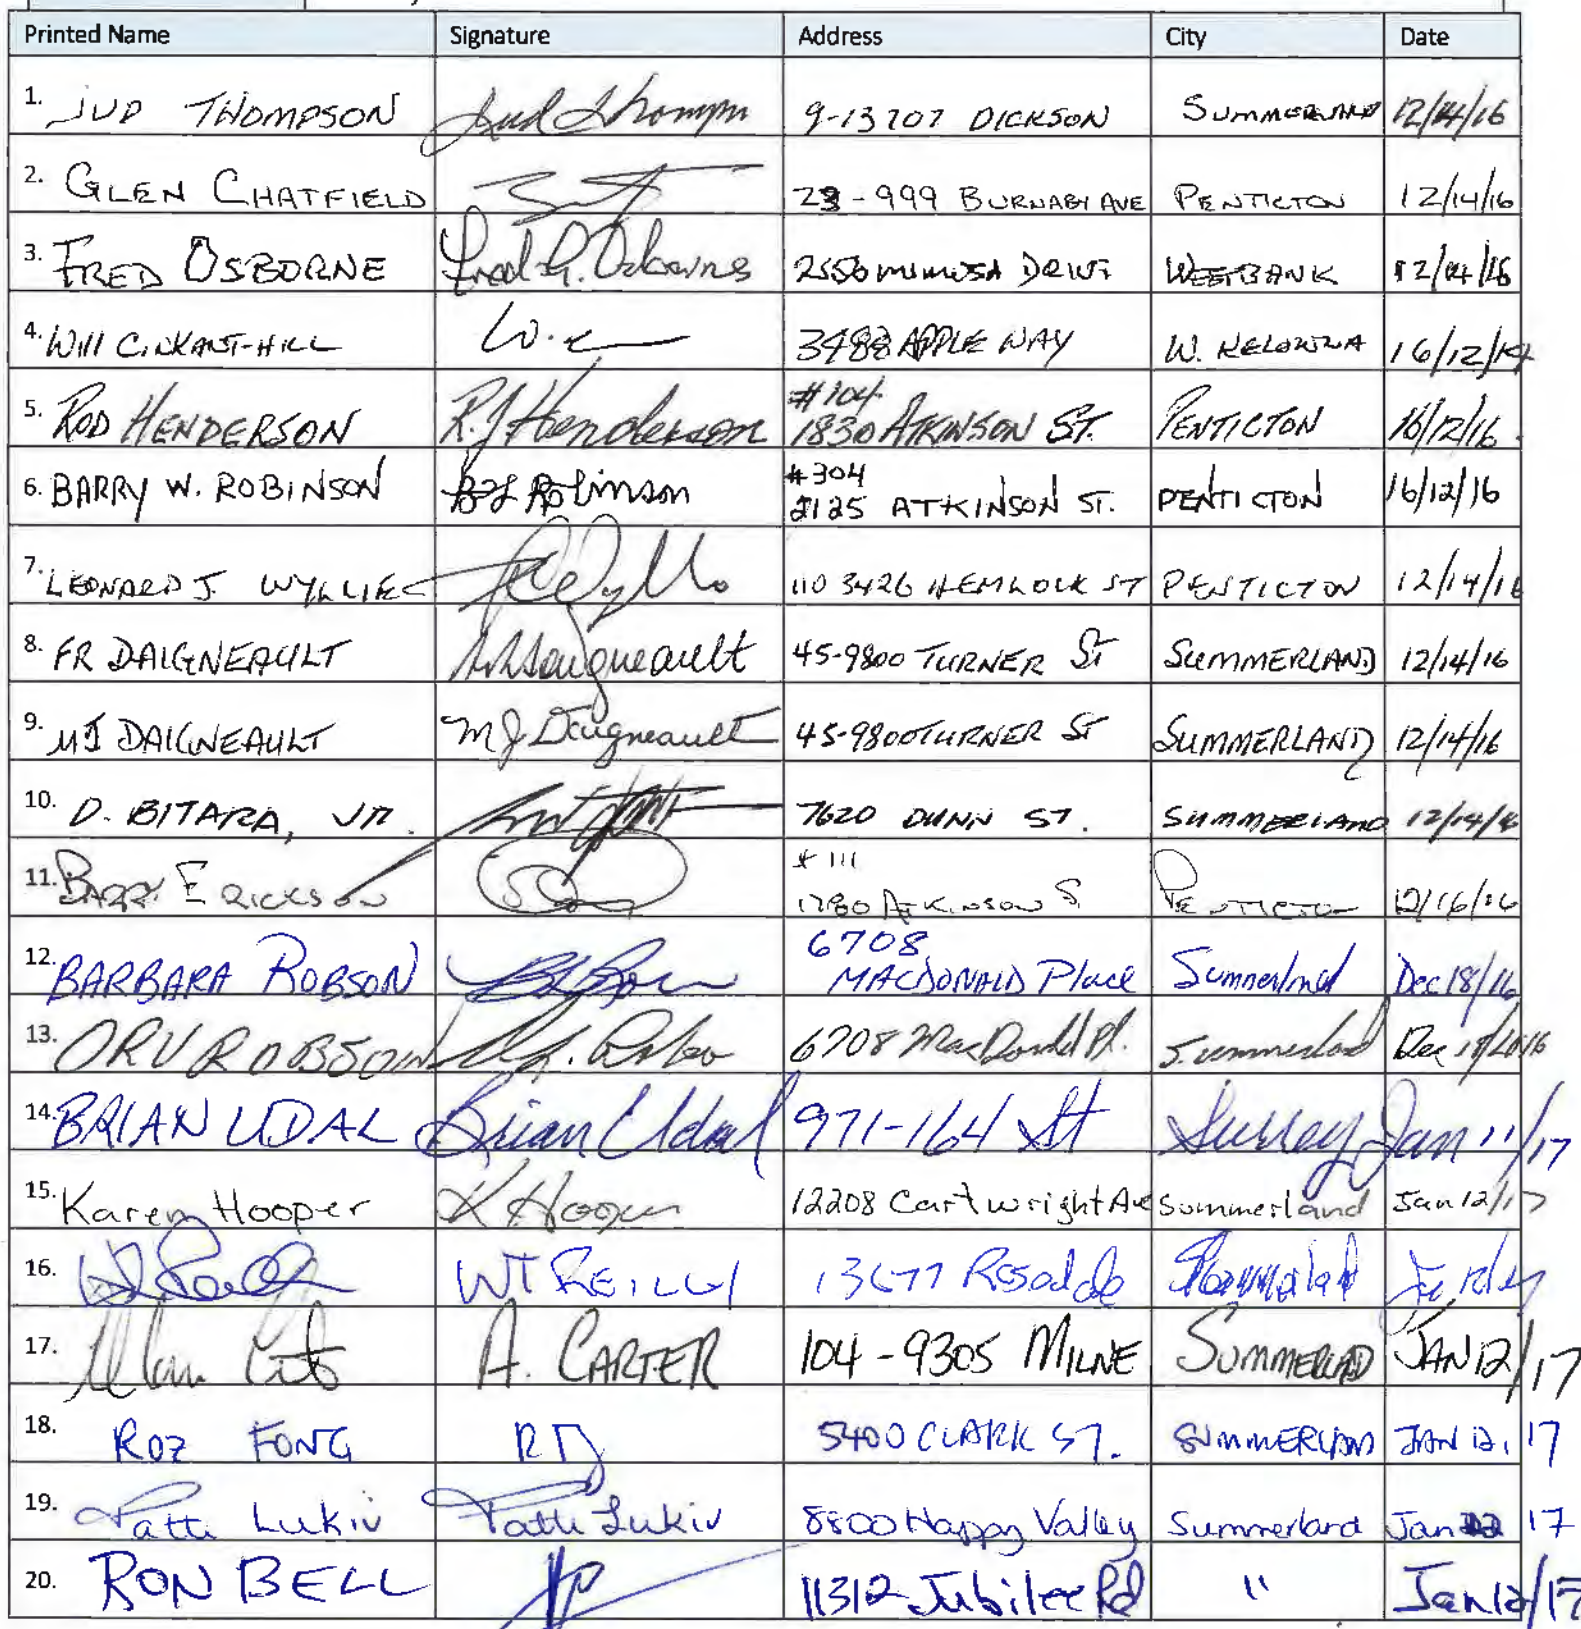 Printed Name Signature Address City Date
1. JUD THOMPSON Jud Thompson 9-13707 DICKSON SUMMERLAND 12/14/16
2. GLEN CHATFIELD 23-999 BURNABY AVE PENTICTON 12/14/16
3. FRED OSBORNE Fred G. Osborne 2556 MIMOSA DRIVE WESTBANK 12/14/16
4. Will CINKANT-HILL W. 3488 APPLE WAY W. KELOWNA 16/12/14
5. ROD HENDERSON R.J Henderson #104 1830 ATKINSON ST. PENTICTON 16/12/16
6. BARRY W. ROBINSON Robinson #304 2125 ATKINSON ST. PENTICTON 16/12/16
7. LEONARD J. WYLLIE 110 3426 HEMLOCK ST PENTICTON 12/14/16
8. FR DAIGNEAULT Daigneault 45-9800 TURNER ST SUMMERLAND 12/14/16
9. MJ DAIGNEAULT MJ Daigneault 45-9800 TURNER ST SUMMERLAND 12/14/16
10. D. BITARA, JR. 7620 DUNN ST. SUMMERLAND 12/14/16
11. BARRY ERICKSON #111 1780 ATKINSON S PENTICTON 12/16/16
12. BARBARA ROBSON 6708 MACDONALD Place Summerland Dec 18/16
13. ORV ROBSON 6708 MacDonald Pl. Summerland Dec 18/2016
14. BRIAN UDAL Brian Udal 971-164 St Surrey Jan 11/17
15. Karen Hooper K Hooper 12208 Cartwright Ave Summerland Jan 12/17
16. WT REILLY 13677 Rosedale Summerland
17. Alan Carter A. CARTER 104-9305 MILNE SUMMERLAND JAN 12/17
18. ROZ FONG 5400 CLARK ST. SUMMERLAND JAN 12, 17
19. Patti Lukiv Patti Lukiv 8800 Happy Valley Summerland Jan 17
20. RON BELL 11312 Jubilee Rd " Jan 12/17